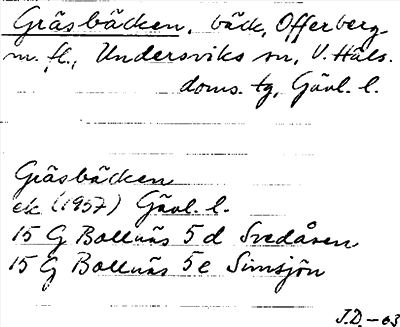 Gräsbäcken, bäck, Offerberg
m. fl., Undersviks sn, V. Häls.
doms. tg, Gävl. l.
Gräsbäcken
ek (1957) Gävl. l.
15 G Bollnäs 5 d Svedåsen
15 G Bollnäs 5 e Simsjön
J.D. – 63